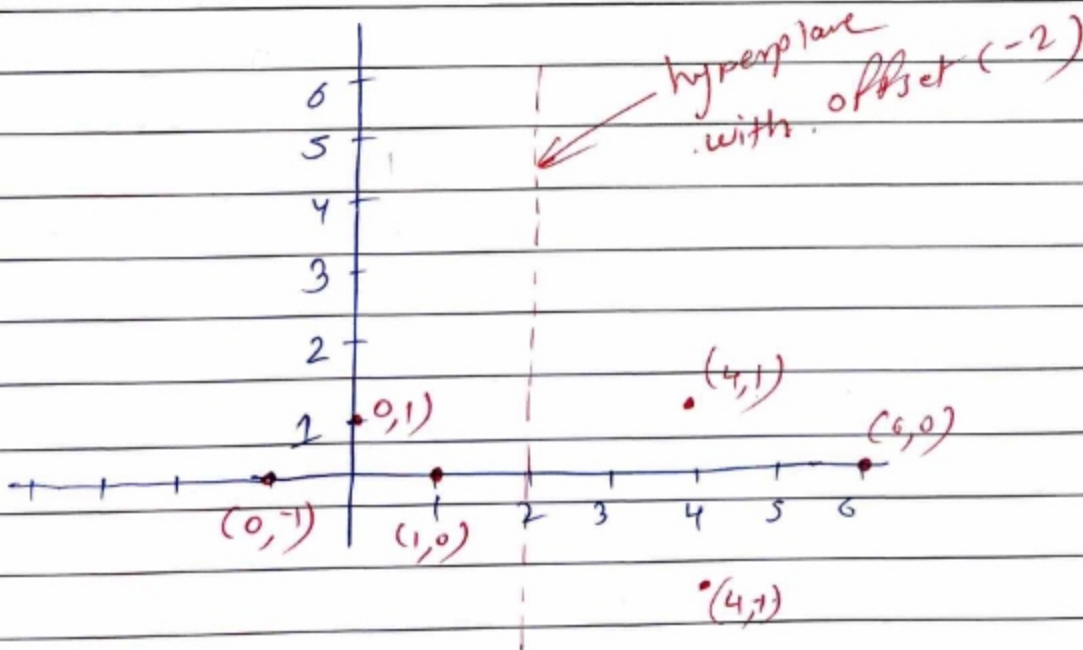 hyperplane
with offset (-2)
6
5
4
3
2
1
0,1)
(4,1)
(6,0)
(0,-1)
(1,0)
2 3 4 5 6
(4,-1)